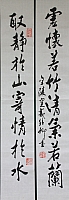 虚懷若竹清氣若蘭
取靜於山寄情於水